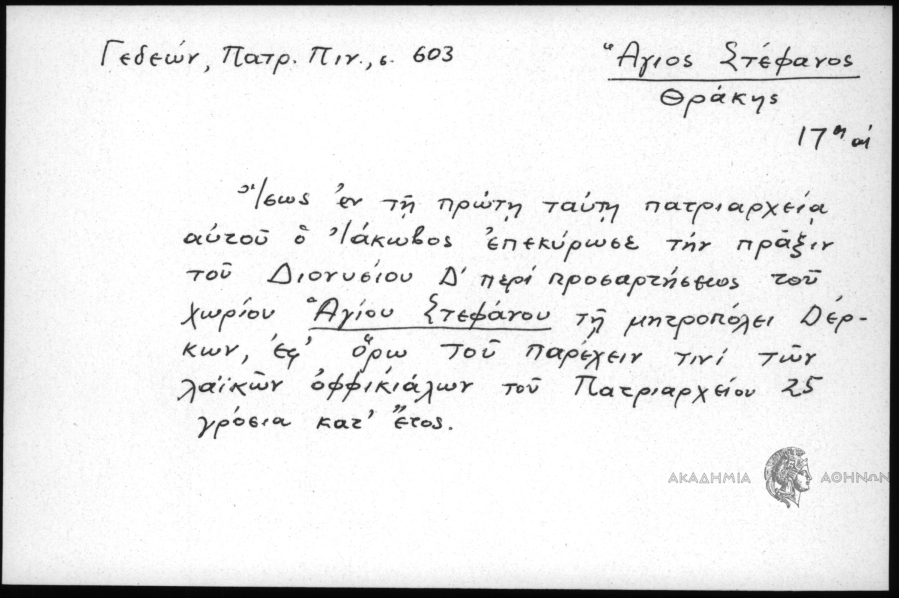 Γεδεών, Πατρ. Πιν., σ. 603
Ἅγιος Στέφανος
Θράκης
17ος αἰ
Ἴσως ἐν τῇ πρώτῃ ταύτῃ πατριαρχείᾳ
αὐτοῦ ὁ Ἰάκωβος ἐπεκύρωσε τὴν πρᾶξιν
τοῦ Διονυσίου Δ' περί προσαρτήσεως τοῦ
χωρίου Ἁγίου Στεφάνου τῇ μητροπόλει Δέρ-
κων, ἐφ' ὅρῳ τοῦ παρέχειν τινί τῶν
λαϊκῶν ὀφφικιάλων τοῦ Πατριαρχείου 25
γρόσια κατ' ἔτος.
ΑΚΑΔΗΜΙΑ ΑΘΗΝΩΝ